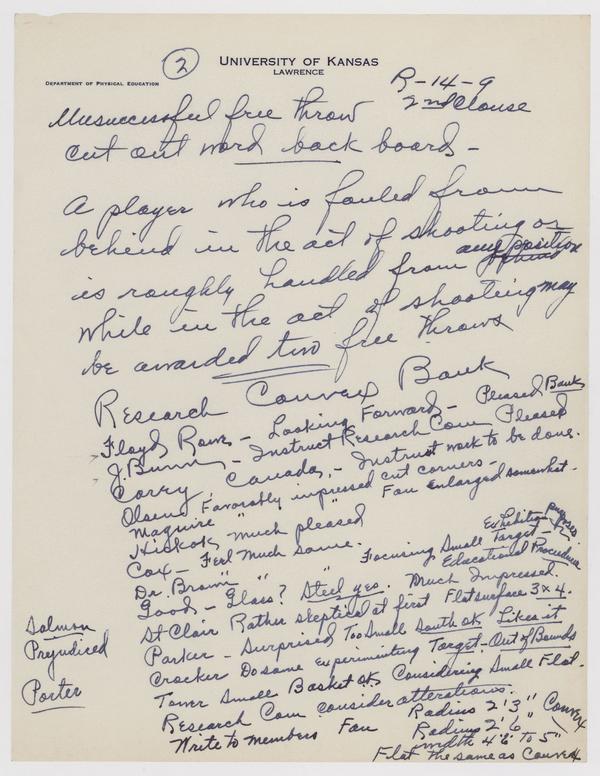 2
UNIVERSITY OF KANSAS
LAWRENCE
DEPARTMENT OF PHYSICAL EDUCATION
R-14-9
2nd Clause
Unsuccessful free throw
cut out word back board -
A player who is fouled from
behind in the act of shooting or
is roughly handled from any position
while in the act of shooting may
be awarded two free throws
Research Convex Bank
Floyd Rowe - Looking Forward - Pleased Bank
J. Bunn - Instruct Research Com Pleased
Corey Canada, - Instruct work to be done.
Olsen, Favorably impressed cut corners -
Maguire " " Fan enlarged somewhat.
Hickok, much pleased
Cox - Feel much same.
Exhibition purposes.
Dr. Brown " " Focusing Small Target - R
Good - Glass? Steel yes. Educational Procedure
St Clair Rather skeptical at first Much Impressed.
Parker - Surprised Too Small Flat surface 3x4.
Crocker Do some experimenting South ok Likes it
Tower Small Basket ok Target - Out of Bounds
Considering Small Flat.
Research Com consider alterations.
Write to members Fan Radius 2'3" Convex
Radius 2'6"
width 4'6" to 5"
Flat the same as Convex
Salmon
Prejudiced
Porter